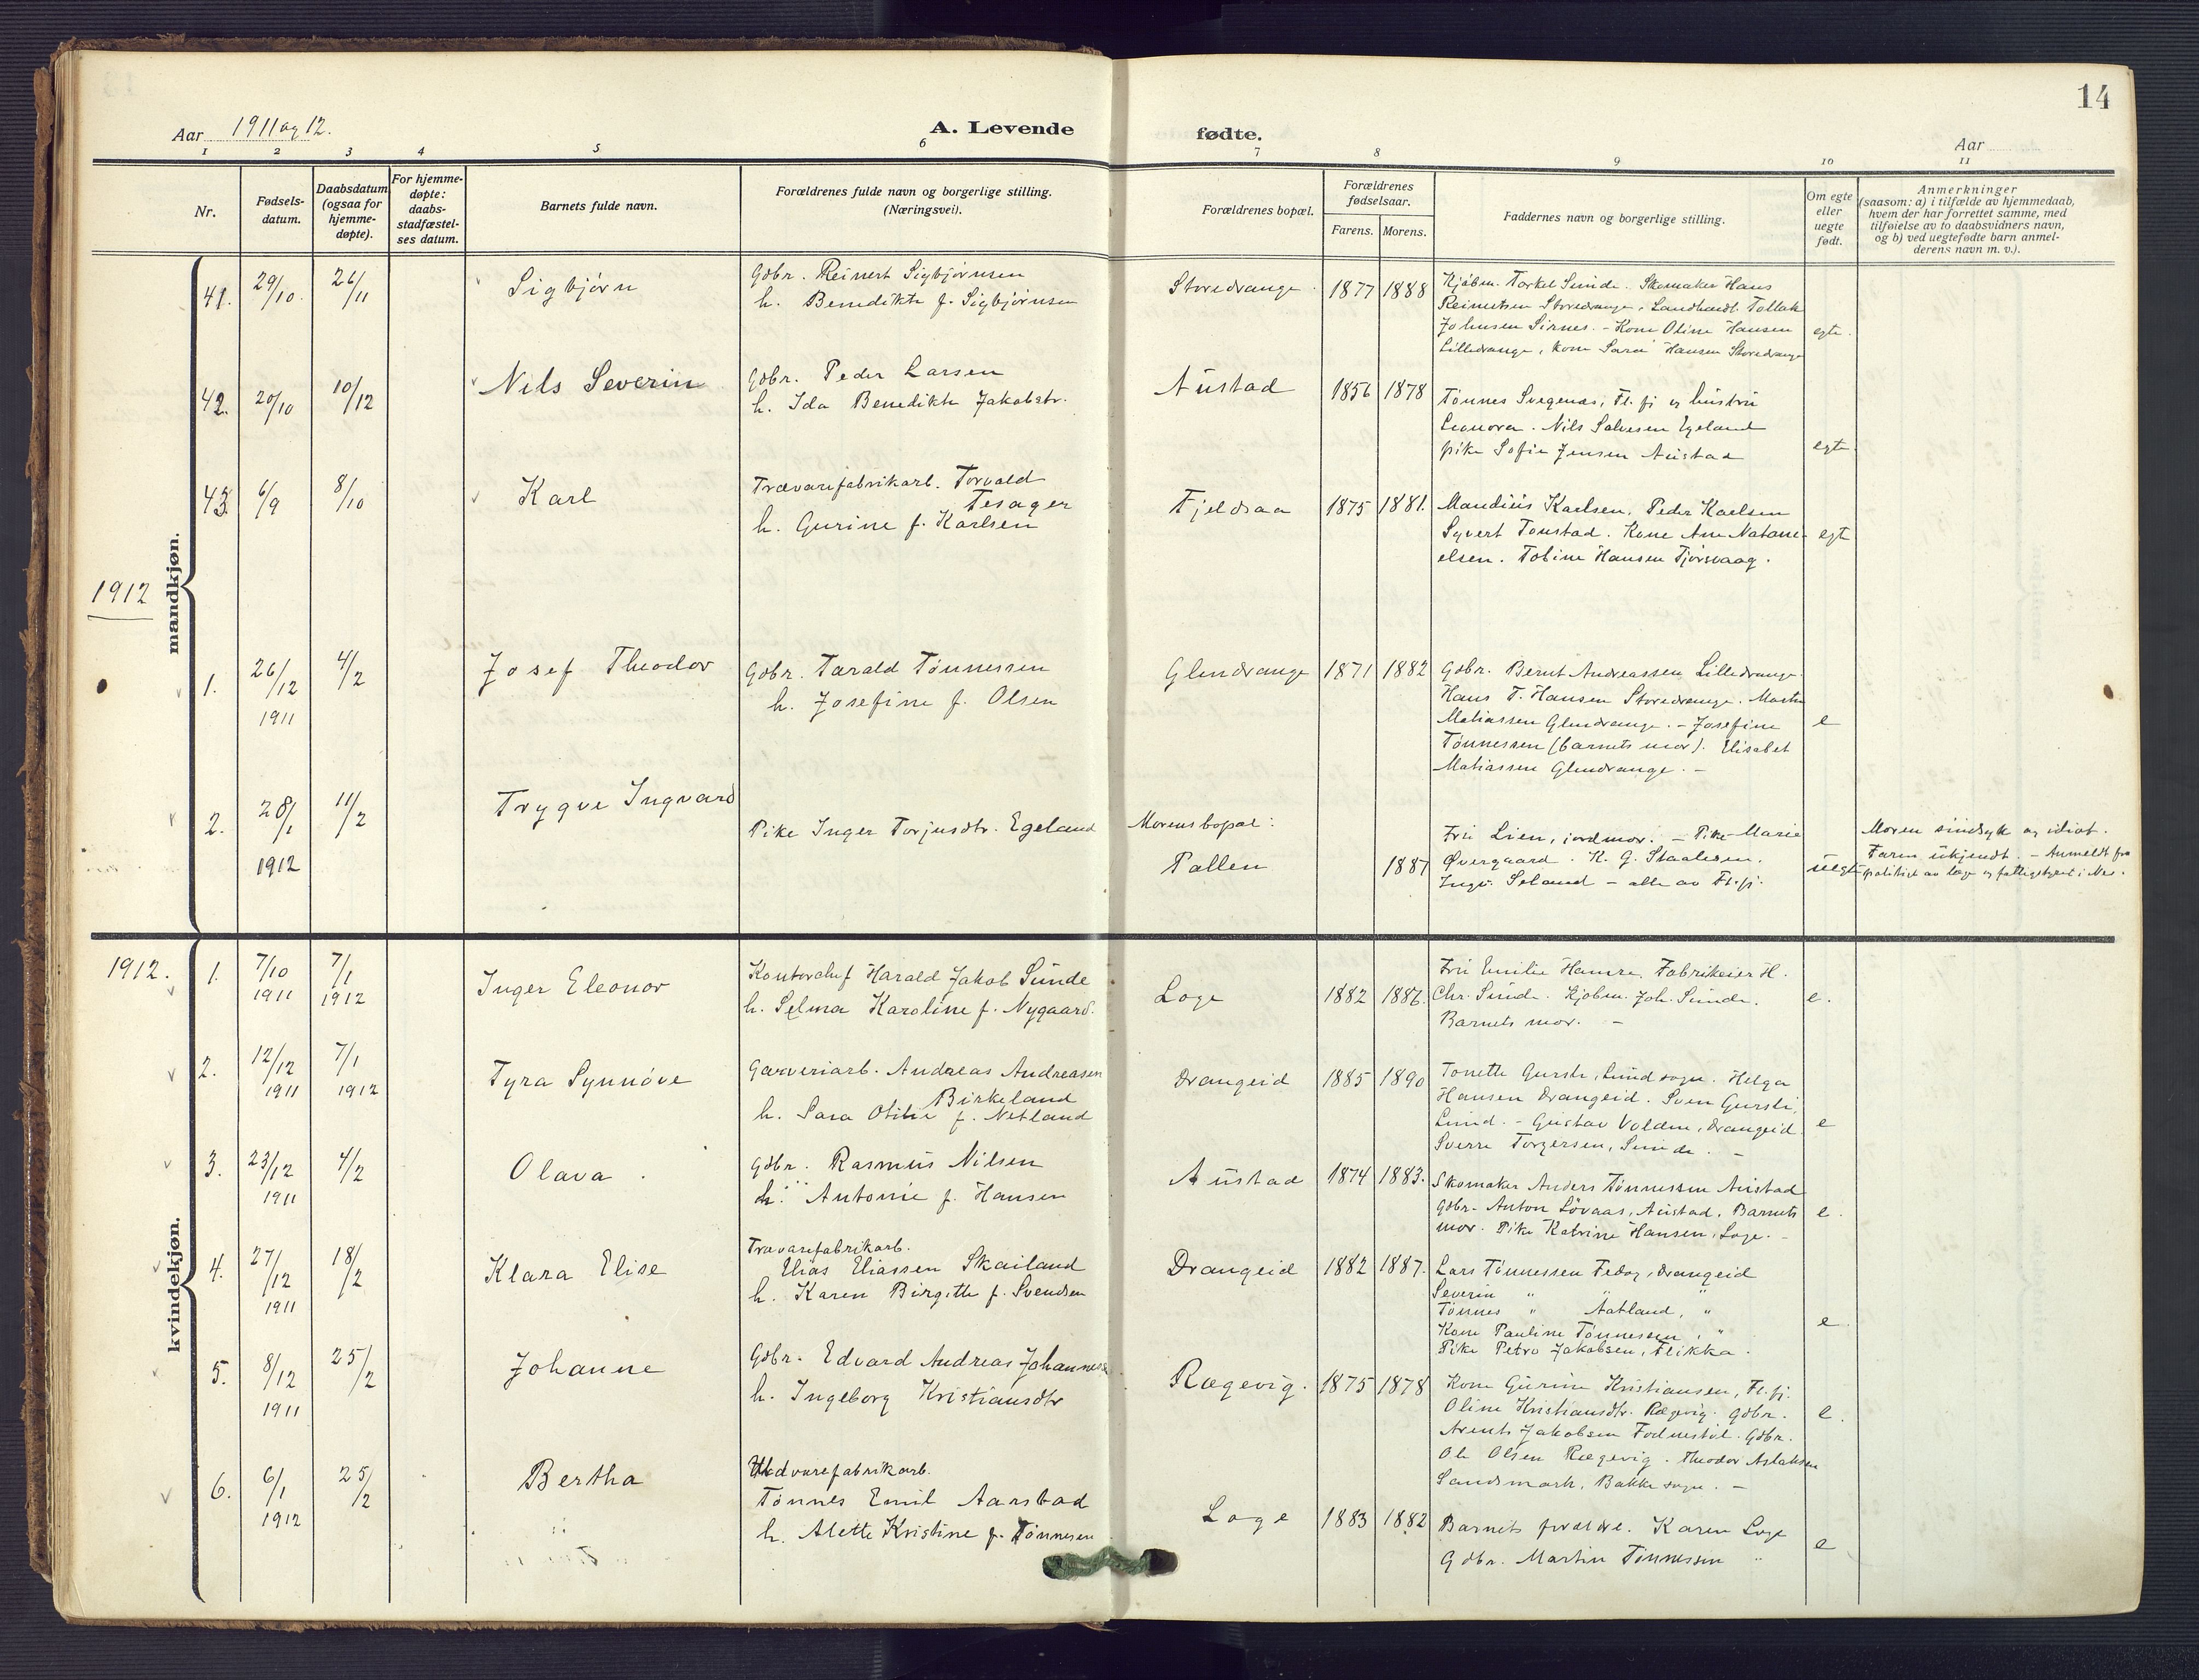 14
Aar 1911 og 12.
A. Levende fødte.
Aar
1 2 3 4 5 6 7 8 9 10 11
Nr.
Fødsels-
datum.
Daabsdatum
(ogsaa for
hjemme-
døpte).
For hjemme-
døpte:
daabs-
stadfæstel-
ses datum.
Barnets fulde navn.
Forældrenes fulde navn og borgerlige stilling.
(Næringsvei).
Forældrenes bopæl.
Forældrenes
fødselsaar.
Farens. Morens.
Faddernes navn og borgerlige stilling.
Om egte
eller
uegte
født.
Anmerkninger
(saasom: a) i tilfælde av hjemmedaab,
hvem der har forrettet samme, med
tilføielse av to daabsvidners navn,
og b) ved uegtefødte barn anmel-
derens navn m. v.).
mandkjøn.
41. 29/10. 26/11 Sigbjørn
Gdbr. Reinert Sigbjørnsen
h. Benedikte f. Sigbjørnsen
Storedrange 1877 1888
Kjøbm. Torkel Sunde. Skomaker Hans
Reinertsen Storedrange, Landhandl. Tollak
Johnsen Sirnes. - Kone Oline Hansen
Lilledrange, kone Sara Hansen Storedrange
egte.
42. 20/10 10/12 Nils Severin
Gdbr. Peder Larsen
h. Ida Benedikte Jakobstr.
Austad 1856 1878
Tønnes Svegenæs, Fl. fj og hustru
Leonora. Nils Salvesen Egeland
pike Sofie Jensen Austad
egte.
43. 6/9 8/10 Karl
Trævarefabrikarb. Torvald
Tesager
h. Gurine f. Karlsen
Fjeldsaa 1875 1881.
Mandius Karlsen, Peder Karlsen
Syvert Tonstad. Kone Ane Natani-
elsen. Tobine Hansen Tjørsvaag.
egt
1912
1. 26/12 1911 4/2 Josef Theodor
Gdbr. Tarald Tønnessen
h. Josefine f. Olsen
Glendrange 1871 1882
Gdbr. Bernt Andreassen Lilledrange.
Hans T. Hansen Storedrange. Martin
Matiassen Glendrange. - Josefine
Tønnessen (barnets mor). Elisabet
Matiassen Glendrange. -
e
2. 28/1 1912 11/2 Trygve Ingvard
Pike Inger Torjusdtr. Egeland
Morens bopæl:
Pallen 1887
Fru Lien, jordmor. - Pike Marie
Øvergaard. K. G. Staalesen.
Ingv. Seland - alle av Fl. fj.
uegte
Moren sindsyk og idiot.
Faren ukjendt. - Anmeldt fra
politiet av læge og fattigstyret i Nes.
kvindekjøn.
1912.
1. 7/10 1911 7/1 1912 Inger Eleonor
Kontorchef Harald Jakob Sunde
h. Selma Karoline f. Nygaard.
Loge 1882 1886.
Fru Emilie Hamre, Fabrikeier H.
Chr. Sunde. Kjøbm. Joh. Sunde.
Barnets mor. -
e.
2. 12/12 1911 7/1 1912 Tyra Synnøve
Garveriarb. Andreas Andreasen
Birkeland
h. Sara Otilie f. Netland
Drangeid 1885 1890
Tonette Gursli, Lund sogn. Helga
Hansen Drangeid. Sven Gursli,
Lund. - Gustav Volden, Drangeid.
Sverre Torgersen, Sunde. -
e
3. 23/12 1911 4/2 Olava.
Gdbr. Rasmus Nilsen
h. Antonie f. Hansen
Austad 1874 1883.
Skomaker Anders Tønnessen Austad
Gdbr. Anton Løvaas, Austad. Barnets
mor. Pike Katrine Hansen, Loge. -
e.
4. 27/12 1911 18/2 Klara Elise
Trævarefabrikarb.
Elias Eliassen Skailand
h. Karen Birgitte f. Svendsen
Drangeid 1882 1887.
Lars Tønnessen Fedog, Drangeid
Severin " " "
Tønnes " Aatland, "
Kone Pauline Tønnessen, "
Pike Petra Jakobsen, Flikka.
e
5. 8/12 1911 25/2 Johanne
Gdbr. Edvard Andreas Johannes
h. Ingeborg Kristiansdtr
Rægevig. 1875 1878
Kone Gurine Kristiansen, Fl. fj.
Oline Kristiansdtr. Rægevig. Gdbr.
Arents Jakobsen Fodnestøl. Gdbr.
Ole Olsen Rægevig. Theodor Aslaksen
Sandsmark, Bakke sogn. -
e.
6. 6/1 1912 25/2 Bertha
Uldvarefabrikarb.
Tønnes Emil Aarstad
h. Alette Kristine f. Tønnesen
Loge 1883 1882
Barnets forældre. Karen Loge
Gdbr. Martin Tønnessen "
e